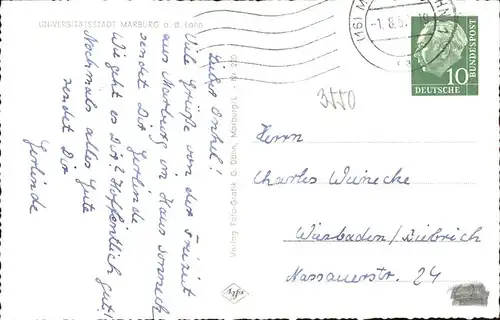 UNIVERSITÄTSSTADT MARBURG a. d. Lahn
Lieber Onkel!
Viele Grüße von der Freizeit
aus Marburg im Haus Sonneck
sendet Dir Gerlinde
Wie geht es Dir? Hoffentlich gut!
Nochmals alles Gute
sendet Dir
Gerlinde
Verlag Foto-Grafik G. Dönn, Marburg/L.
agfa
(16) M
-1.8.5
10
BUNDESPOST
DEUTSCHE
3550
Herrn
Charles Weinecke
Wiesbaden/Biebrich
Nassauerstr. 24